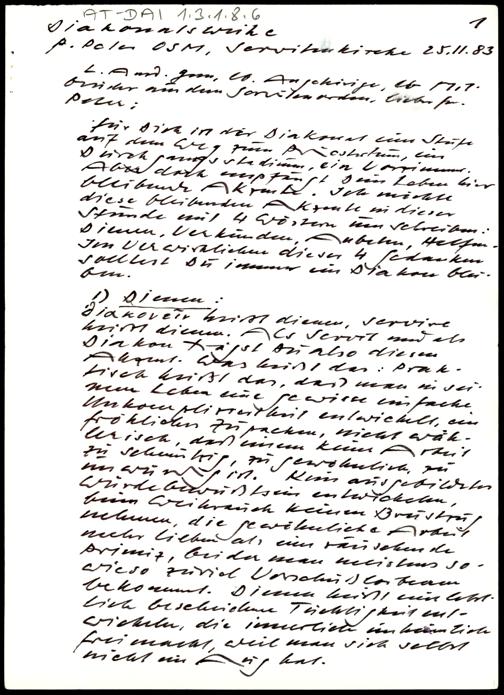 AT-DAI 1.3.1.8.6
1
Diakonatsweihe
P. Peter OSM, Servitenkirche 25.11.83
L. And. gem, w. Angehörige, lb M.
Brüder aus dem Servitenorden, lieber fr.
Peter:
Für Dich ist der Diakonat eine Stufe
auf dem Weg zum Priestertum, ein
Durchgangsstadium, ein Vorzimmer.
Aber doch empfängt Dein Leben hier
bleibende Akzente. Ich möchte
diese bleibenden Akzente in dieser
Stunde mit 4 Wörtern umschreiben:
Dienen, Verkünden, Anbeten, Helfen.
Im Verwirklichen dieser 4 Gedanken
solltest Du immer ein Diakon blei-
ben.
1) Dienen:
Diakonein heißt dienen, servire
heißt dienen. Als Servit und als
Diakon trägst Du also diesen
Akzent. Was heißt das: Prak-
tisch heißt das, daß man in sei-
nem Leben eine gewisse einfache
Unkompliziertheit entwickelt, ein
fröhliches Zupacken, nicht wäh-
lerisch, daß einem keine Arbeit
zu schmutzig, zu gewöhnlich, zu
unwürdig ist. Kein ausgebildetes
Würdebewußtsein entwickeln,
beim Weihrauch keinen Brustzug
nehmen, die gewöhnliche Arbeit
mehr lieben als eine rauschende
Primiz, bei der man meistens so-
wieso zuviel Vorschußlorbeern
bekommt. Dienen heißt eine letzt-
lich bescheidene Tüchtigkeit ent-
wickeln, die innerlich unheimlich
frei macht, weil man sich selbst
nicht im Aug hat.